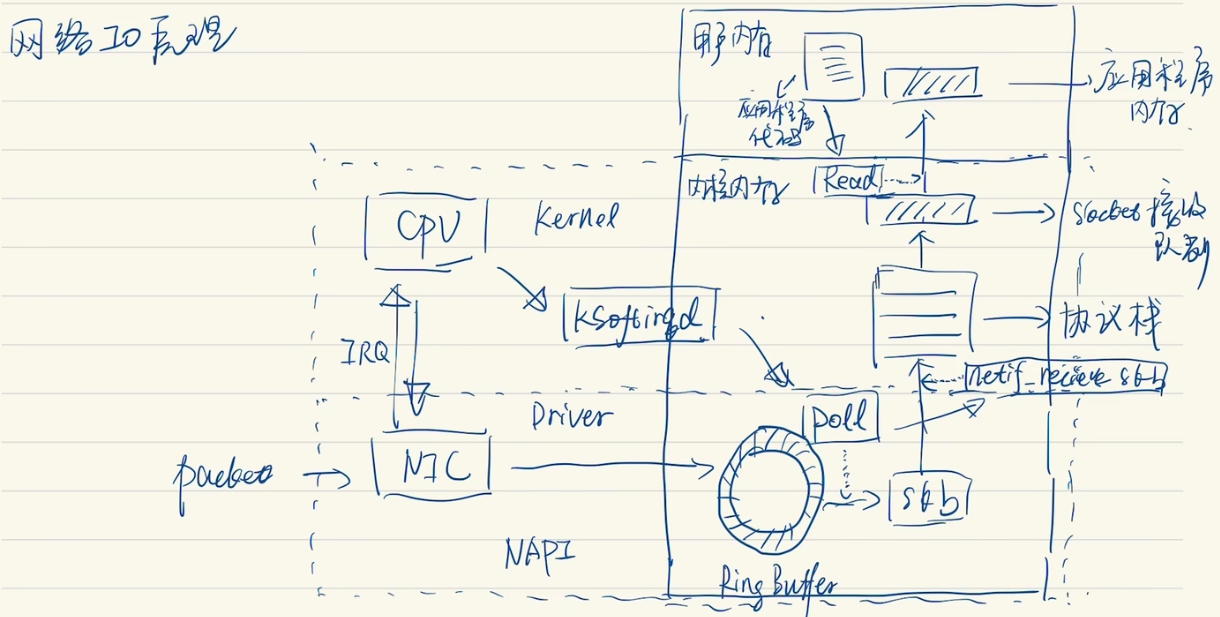 网络IO原理
用户内存
应用程序
代码
应用程序
内存
内核内存
Read
CPU
Kernel
socket接收
队列
ksoftirqd
IRQ
协议栈
netif_recieve skb
Driver
poll
packet
NIC
skb
NAPI
Ring Buffer